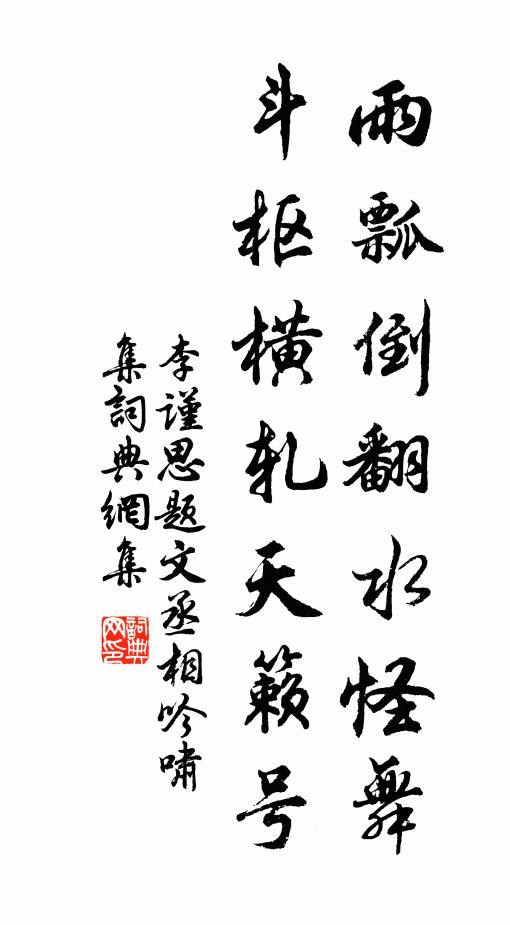 雨瓢倒翻水怪舞
斗枢横轧天籁号
李谨思题文丞相吟啸
集詞典網集
詞典网印